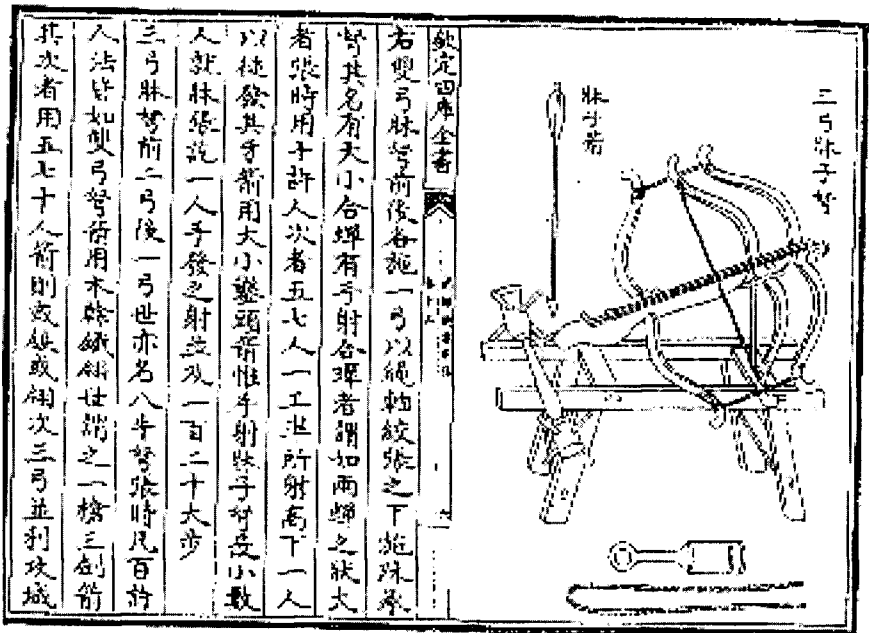 三弓牀子弩
牀子箭
欽定四庫全書
右雙弓牀弩前後各施一弓以繩軸絞張之下施牀承
弩其名有大小合蟬有手射合蟬者謂如兩蟬之狀大
者張時用十許人次者五七人一工準所射高下一人
以槌發其牙箭用大小鑿頭箭惟手射牀子弩最小數
人就牀張訖一人手發之射並及一百二十大步
三弓牀弩前二弓後一弓世亦名八牛弩張時凡百許
人法皆如雙弓弩箭用木簳鐵翎世謂之一槍三劍箭
其次者用五七十人箭則或鐵或翎次三弓並利攻城